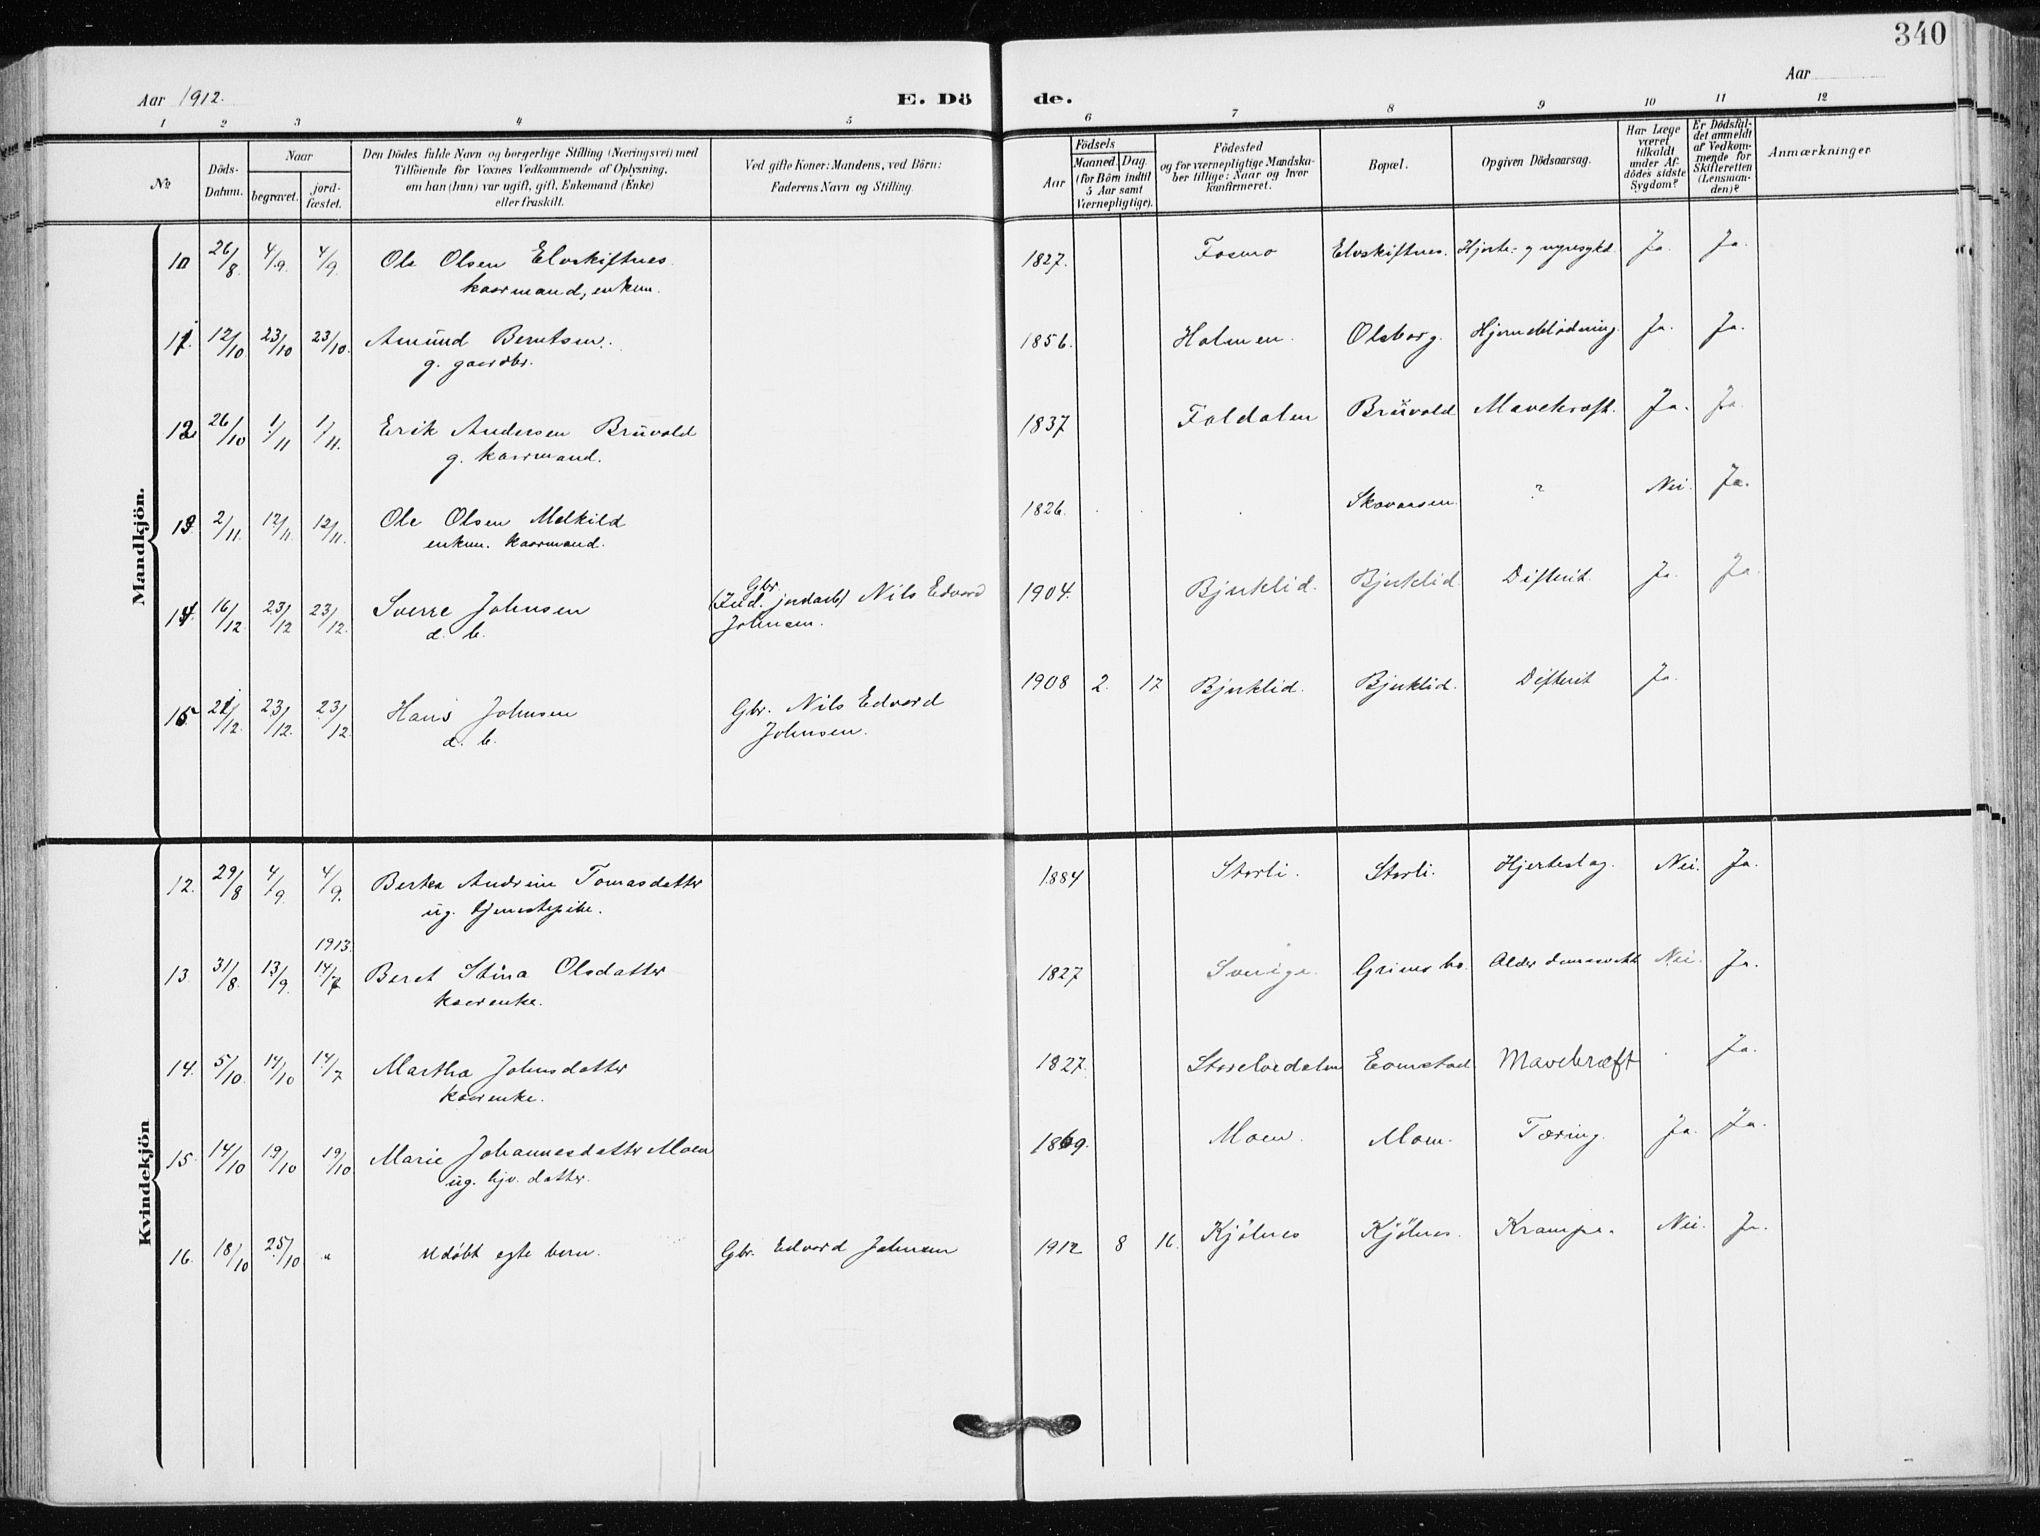 340
Aar 1912.
E. Dö de.
Aar
1 2 3 4 5 6 7 8 9 10 11 12
No
Döds-Datum.
Naar
begravet.
jord-fæstet.
Den Dödes fulde Navn og borgerlige Stilling (Næringsvei) med
Tilföiende for Voxnes Vedkommende af Oplysning,
om han (hun) var ugift, gift, Enkemand (Enke)
eller fraskilt.
Ved gifte Koner: Mandens, ved Börn:
Faderens Navn og Stilling.
Födsels
Aar
Maaned. Dag.
(for Börn indtil
5 Aar samt
Værnepligtige).
Födested
og for værnepligtige Mandska-
ber tillige: Naar og hvor
konfirmeret.
Bopæl.
Opgiven Dödsaarsag.
Har Læge
været
tilkaldt
under Af-
dödes sidste
Sygdom?
Er Dödsfal-
det anmeldt
af Vedkom-
mende for
Skifteretten
(Lensman-
den)?
Anmærkninger
Mandkjön.
10 26/8 4/9. 4/9. Ole Olsen Elvskiftnes. 1827. Fosmo Elvskiftnes. Hjerte- og nyresygd. Ja. Ja.
kaarmand, enkem.
11. 12/10 23/10 23/10. Amund Berntsen. 1856. Holmen. Olsborg. Hjerneblödning. Ja. Ja.
g. gaardbr.
12 26/10 1/11 1/11. Erik Andersen Bruvold 1837 Foldalen Bruvold Mavekræft. Ja. Ja.
g. kaarmand.
13. 2/11. 12/11. 12/11. Ole Olsen Melkild 1826. Skovaasen. ? Nei. Ja.
enkem. kaarmand.
14 16/12 23/12 23/12. Sverre Johnsen Gbr. (Ind. jordarb) Nils Edvard 1904. Bjerklid. Bjerklid. Difterit. Ja. Ja.
d. b. Johnsen.
15 21/12. 23/12. 23/12. Hans Johnsen Gbr. Nils Edvard 1908 2. 17 Bjerklid. Bjerklid. Difterit Ja.
d. b. Johnsen.
Kvindekjön
12. 29/8 4/9. 4/9. Bertea Andrine Tomasdatter 1884 Storli. Storli. Hjerteslag. Nei. Ja.
ug. tjenestepike.
1913.
13. 31/8. 13/9. 14/7 Beret Stina Olsdatter 1827 Sverige. Grimsbo. Alderdomssvækk. Nei. Ja.
kaarenke.
14. 5/10. 14/10 14/7 Martha Johnsdatter 1827. Storelvedalen Evenstad. Mavekræft Ja.
kaarenke.
15. 14/10 19/10 19/10. Marie Johannesdatter Moen 1869. Moen. Moen. Tæring. Ja. Ja.
ug. hjv. datter.
16. 18/10 25/10 " Udøbt egte barn. Gbr. Edvard Johnsen 1912 8 16. Kjölnes Kjölnes. Krampe. Nei. Ja.